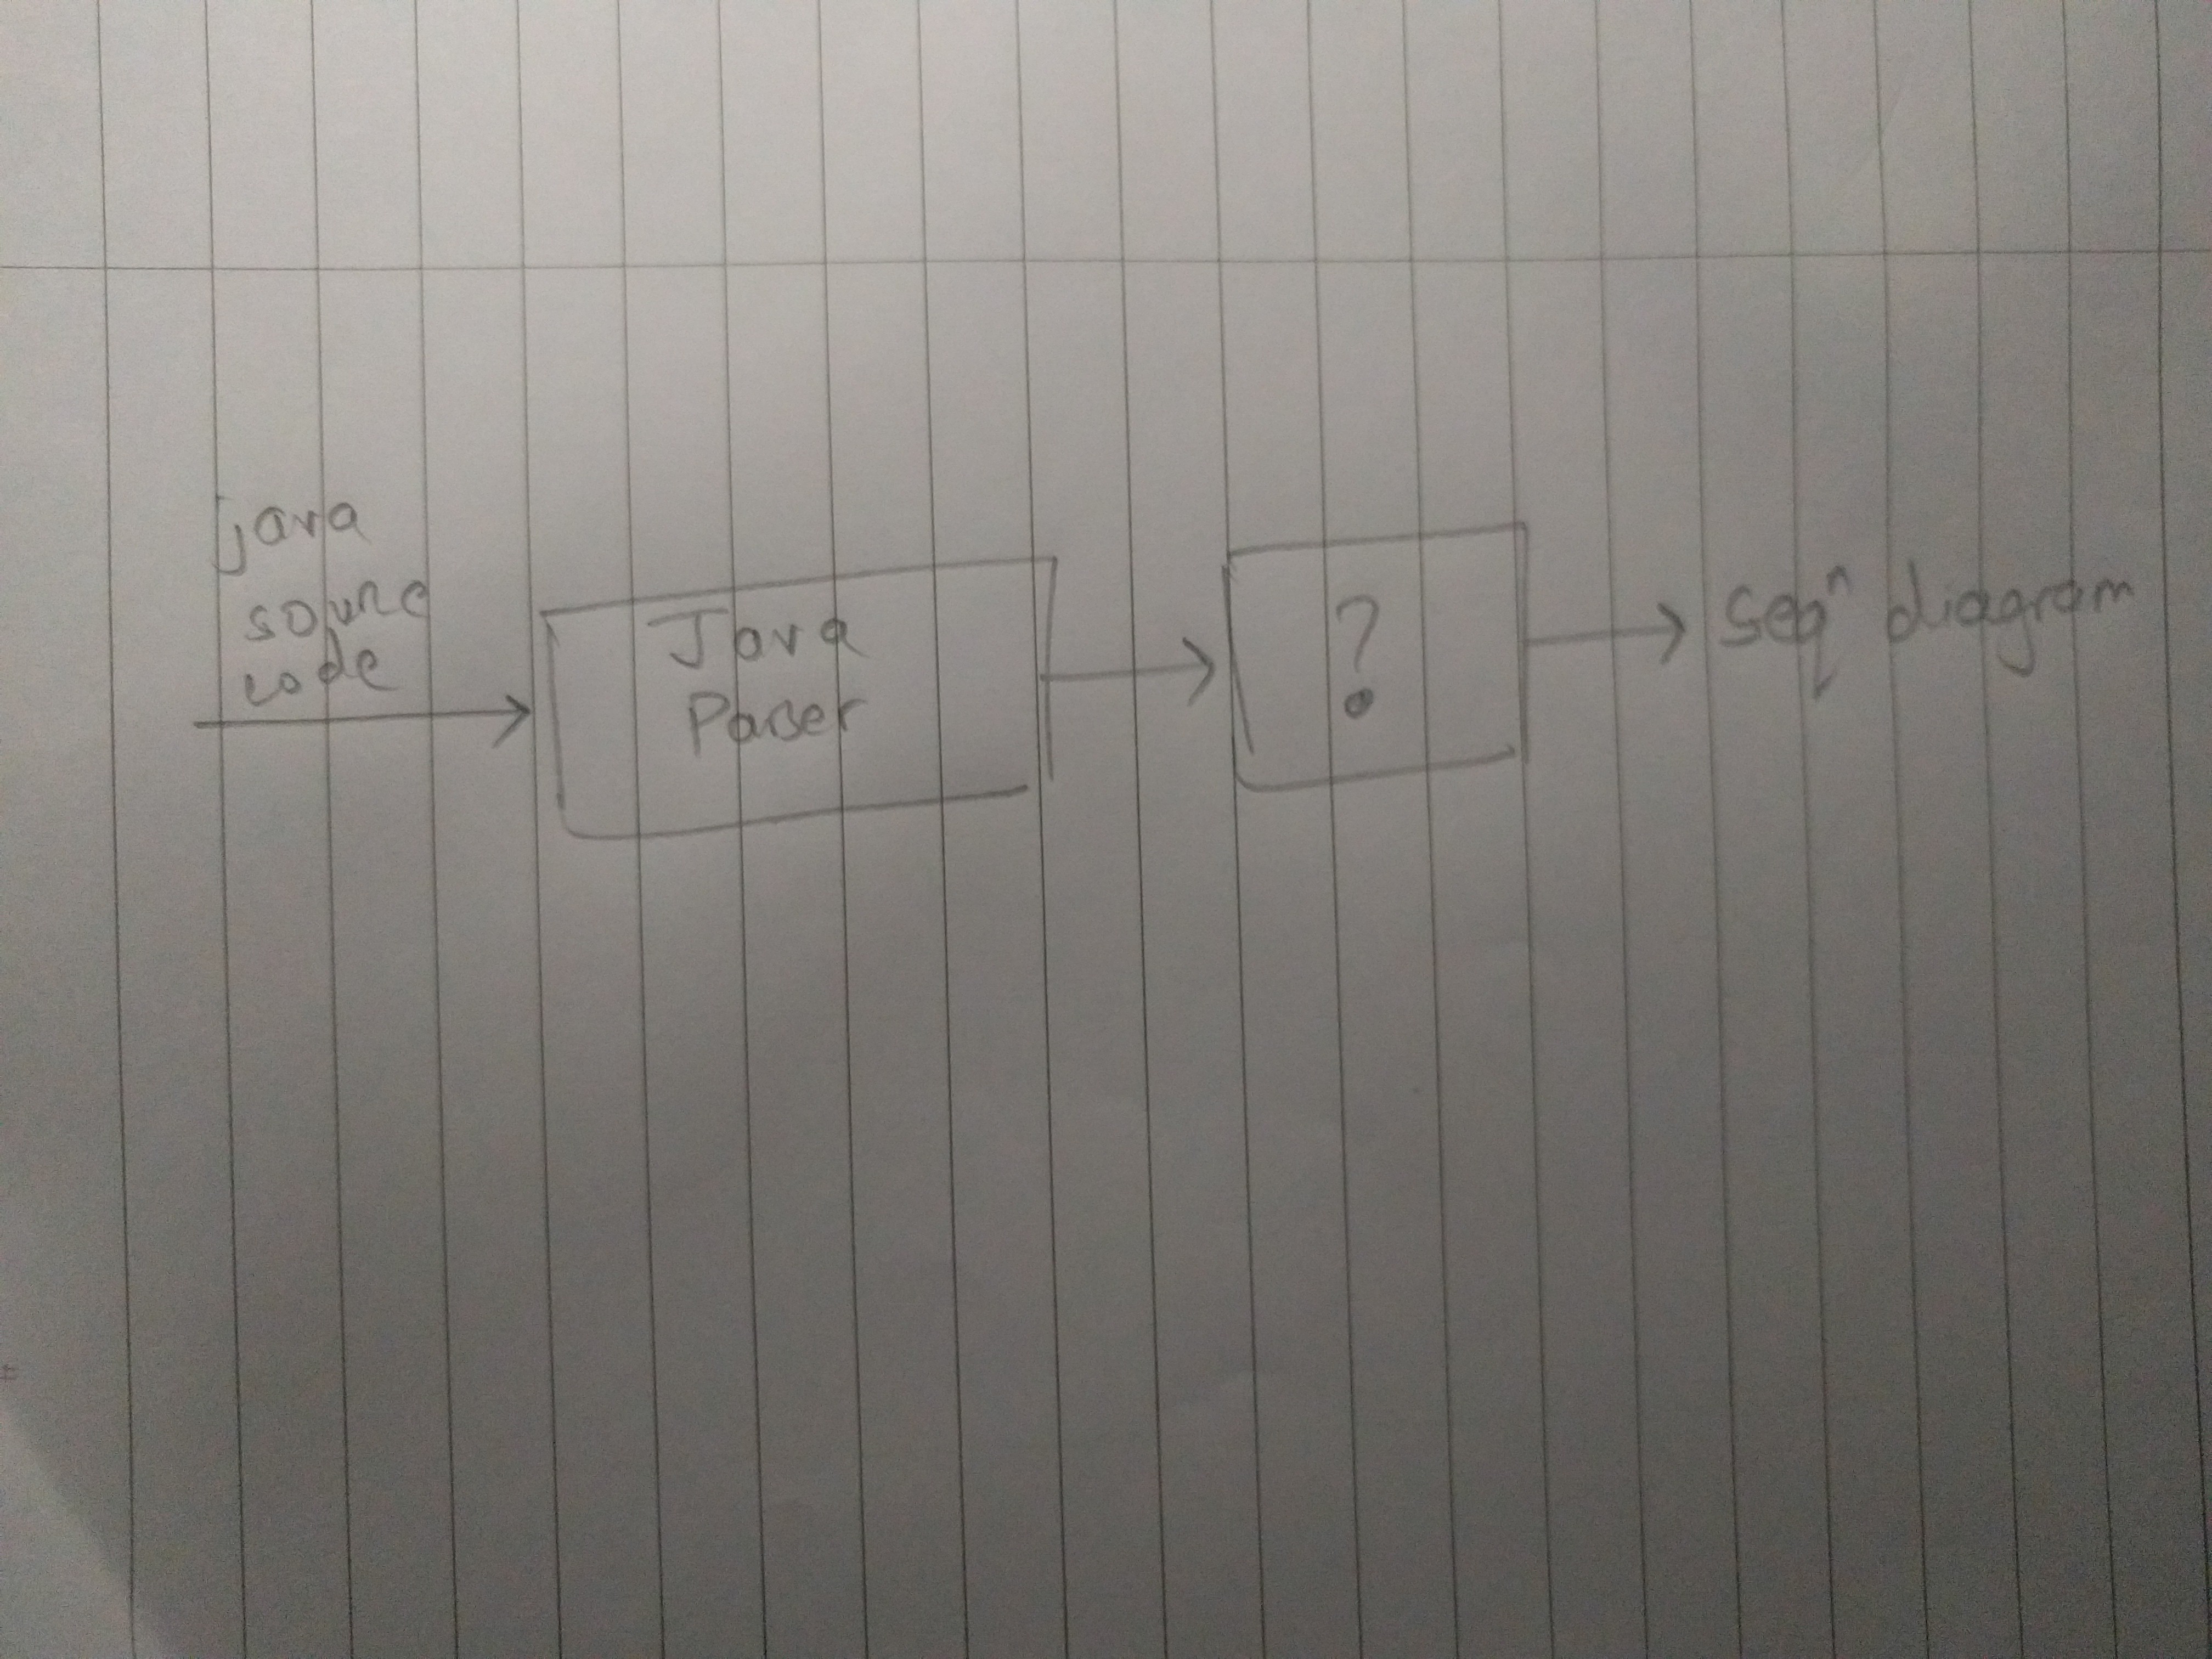 java
source
code
Java
Parser
?
seqⁿ diagram